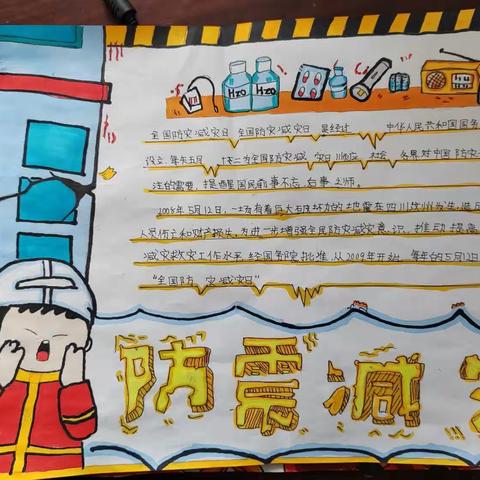 H2O H2O
全国防灾减灾日 全国防灾减灾日 是经过 中华人民共和国国务
设立，每年五月 十二为全国防灾减 灾日 顺应 社会 各界对中国防灾
注的需要，提醒国民前事不忘，后事之师。
2008年5月12日，一场有着巨大破坏力的地震在四川汶川发生造成
人员伤亡和财产损失，为进一步增强全民防灾减灾意识，推动提高
减灾救灾工作水平，经国务院批准，从2009年开始，每年的5月12日
“全国防 灾减灾日”
防震减